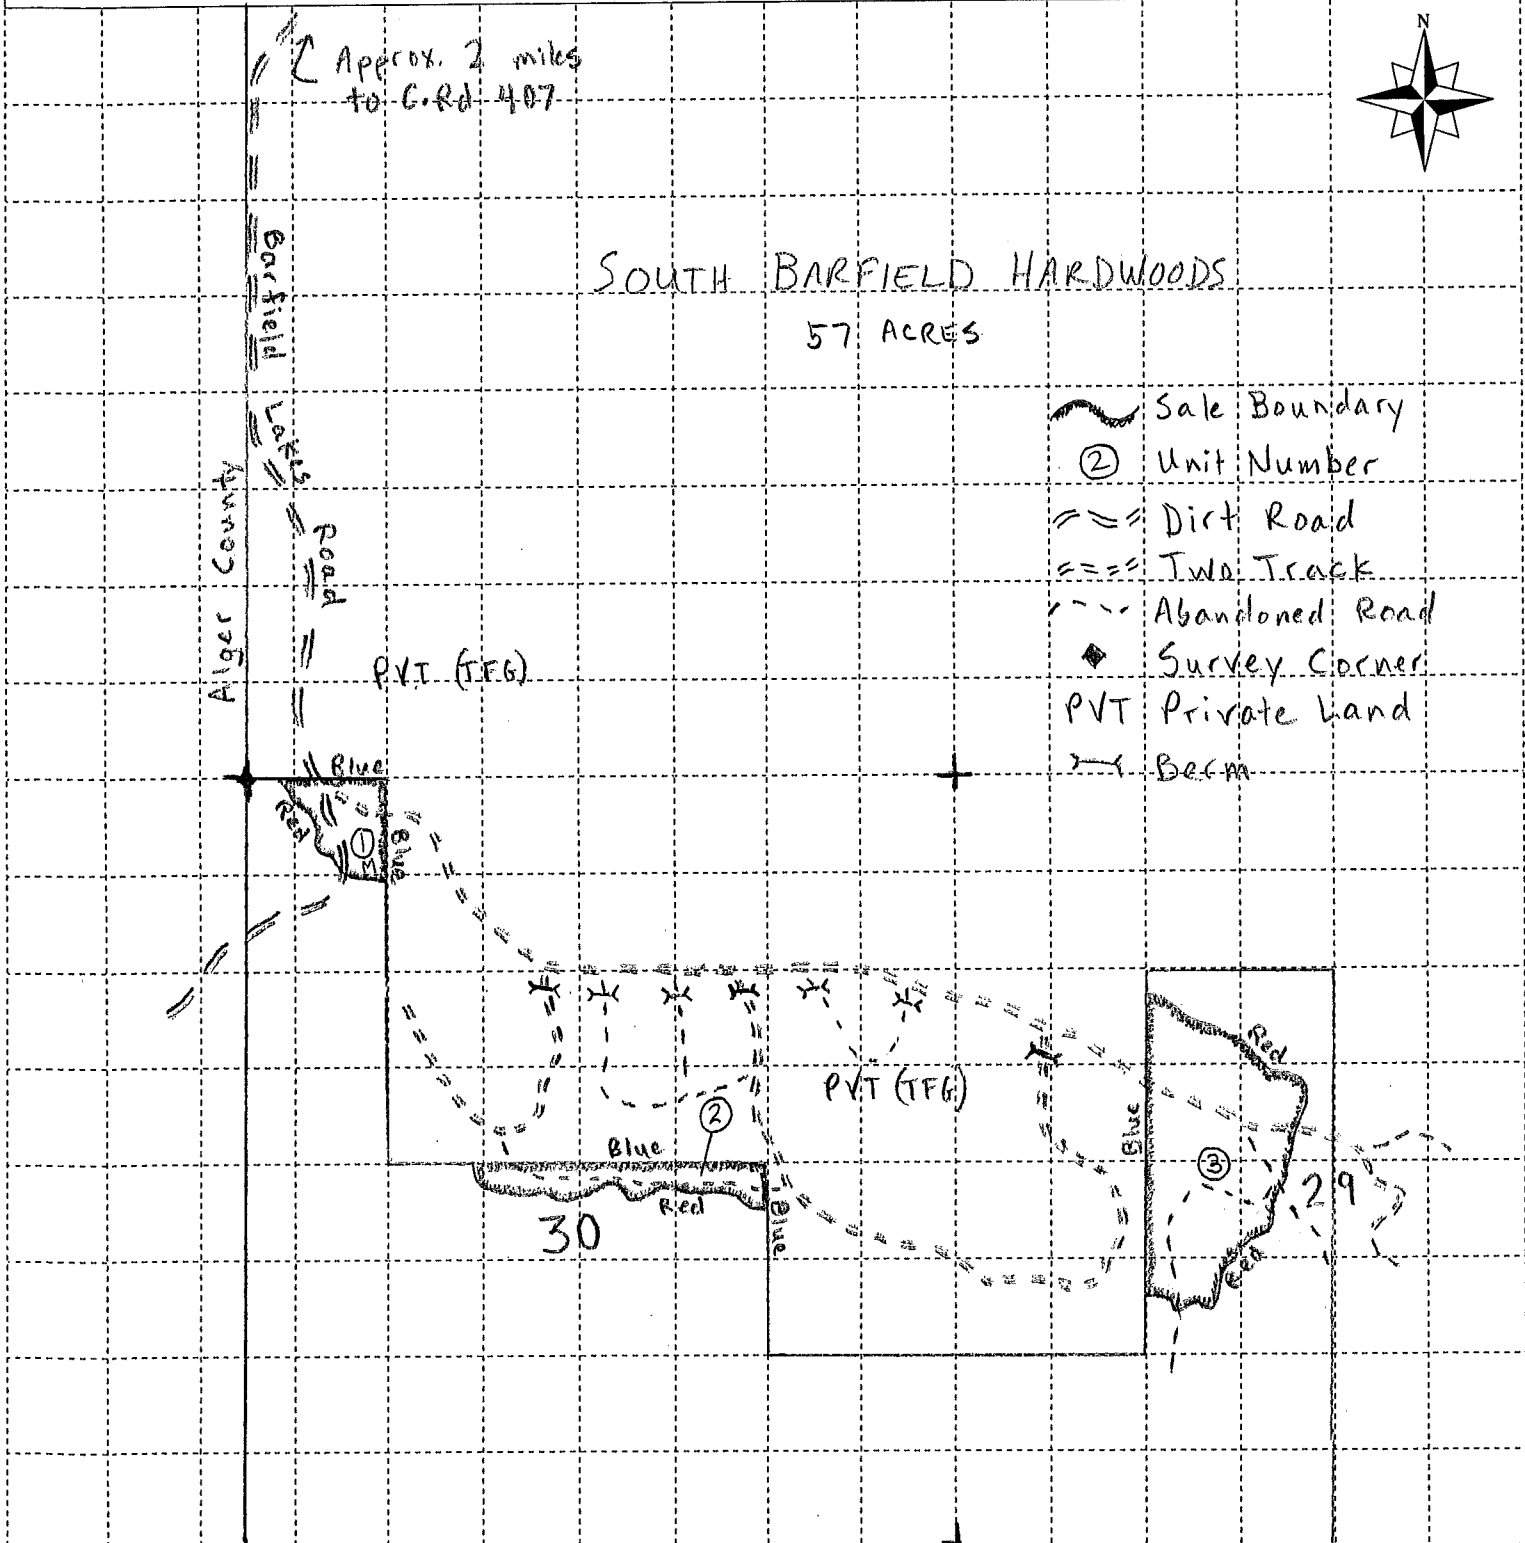 N
Approx. 2 miles
to C.Rd 407
Barfield Lakes Road
SOUTH BARFIELD HARDWOODS
57 ACRES
Sale Boundary
② Unit Number
Dirt Road
Two Track
Abandoned Road
Survey Corner
PVT Private Land
Berm
Alger County
PVT (TFG)
Blue
Red
①
M
Blue
PVT (TFG)
②
Blue
Red
30
Blue
Blue
Red
③
29
Red